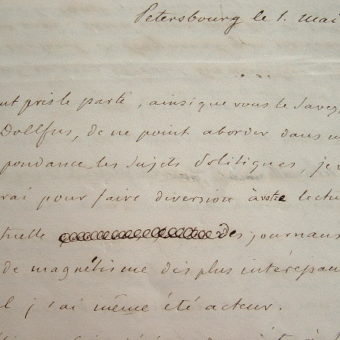 Petersbourg le 1. mai
ut pris le parte, ainsi que vous le Savez
Dollfus, de ne point aborder dans n
pondance les Sujets Politiques, je v
rai pour faire diversion à votre lectu
tuelle des journaux
de magnétisme des plus intéressan
l j'ai même été acteur.